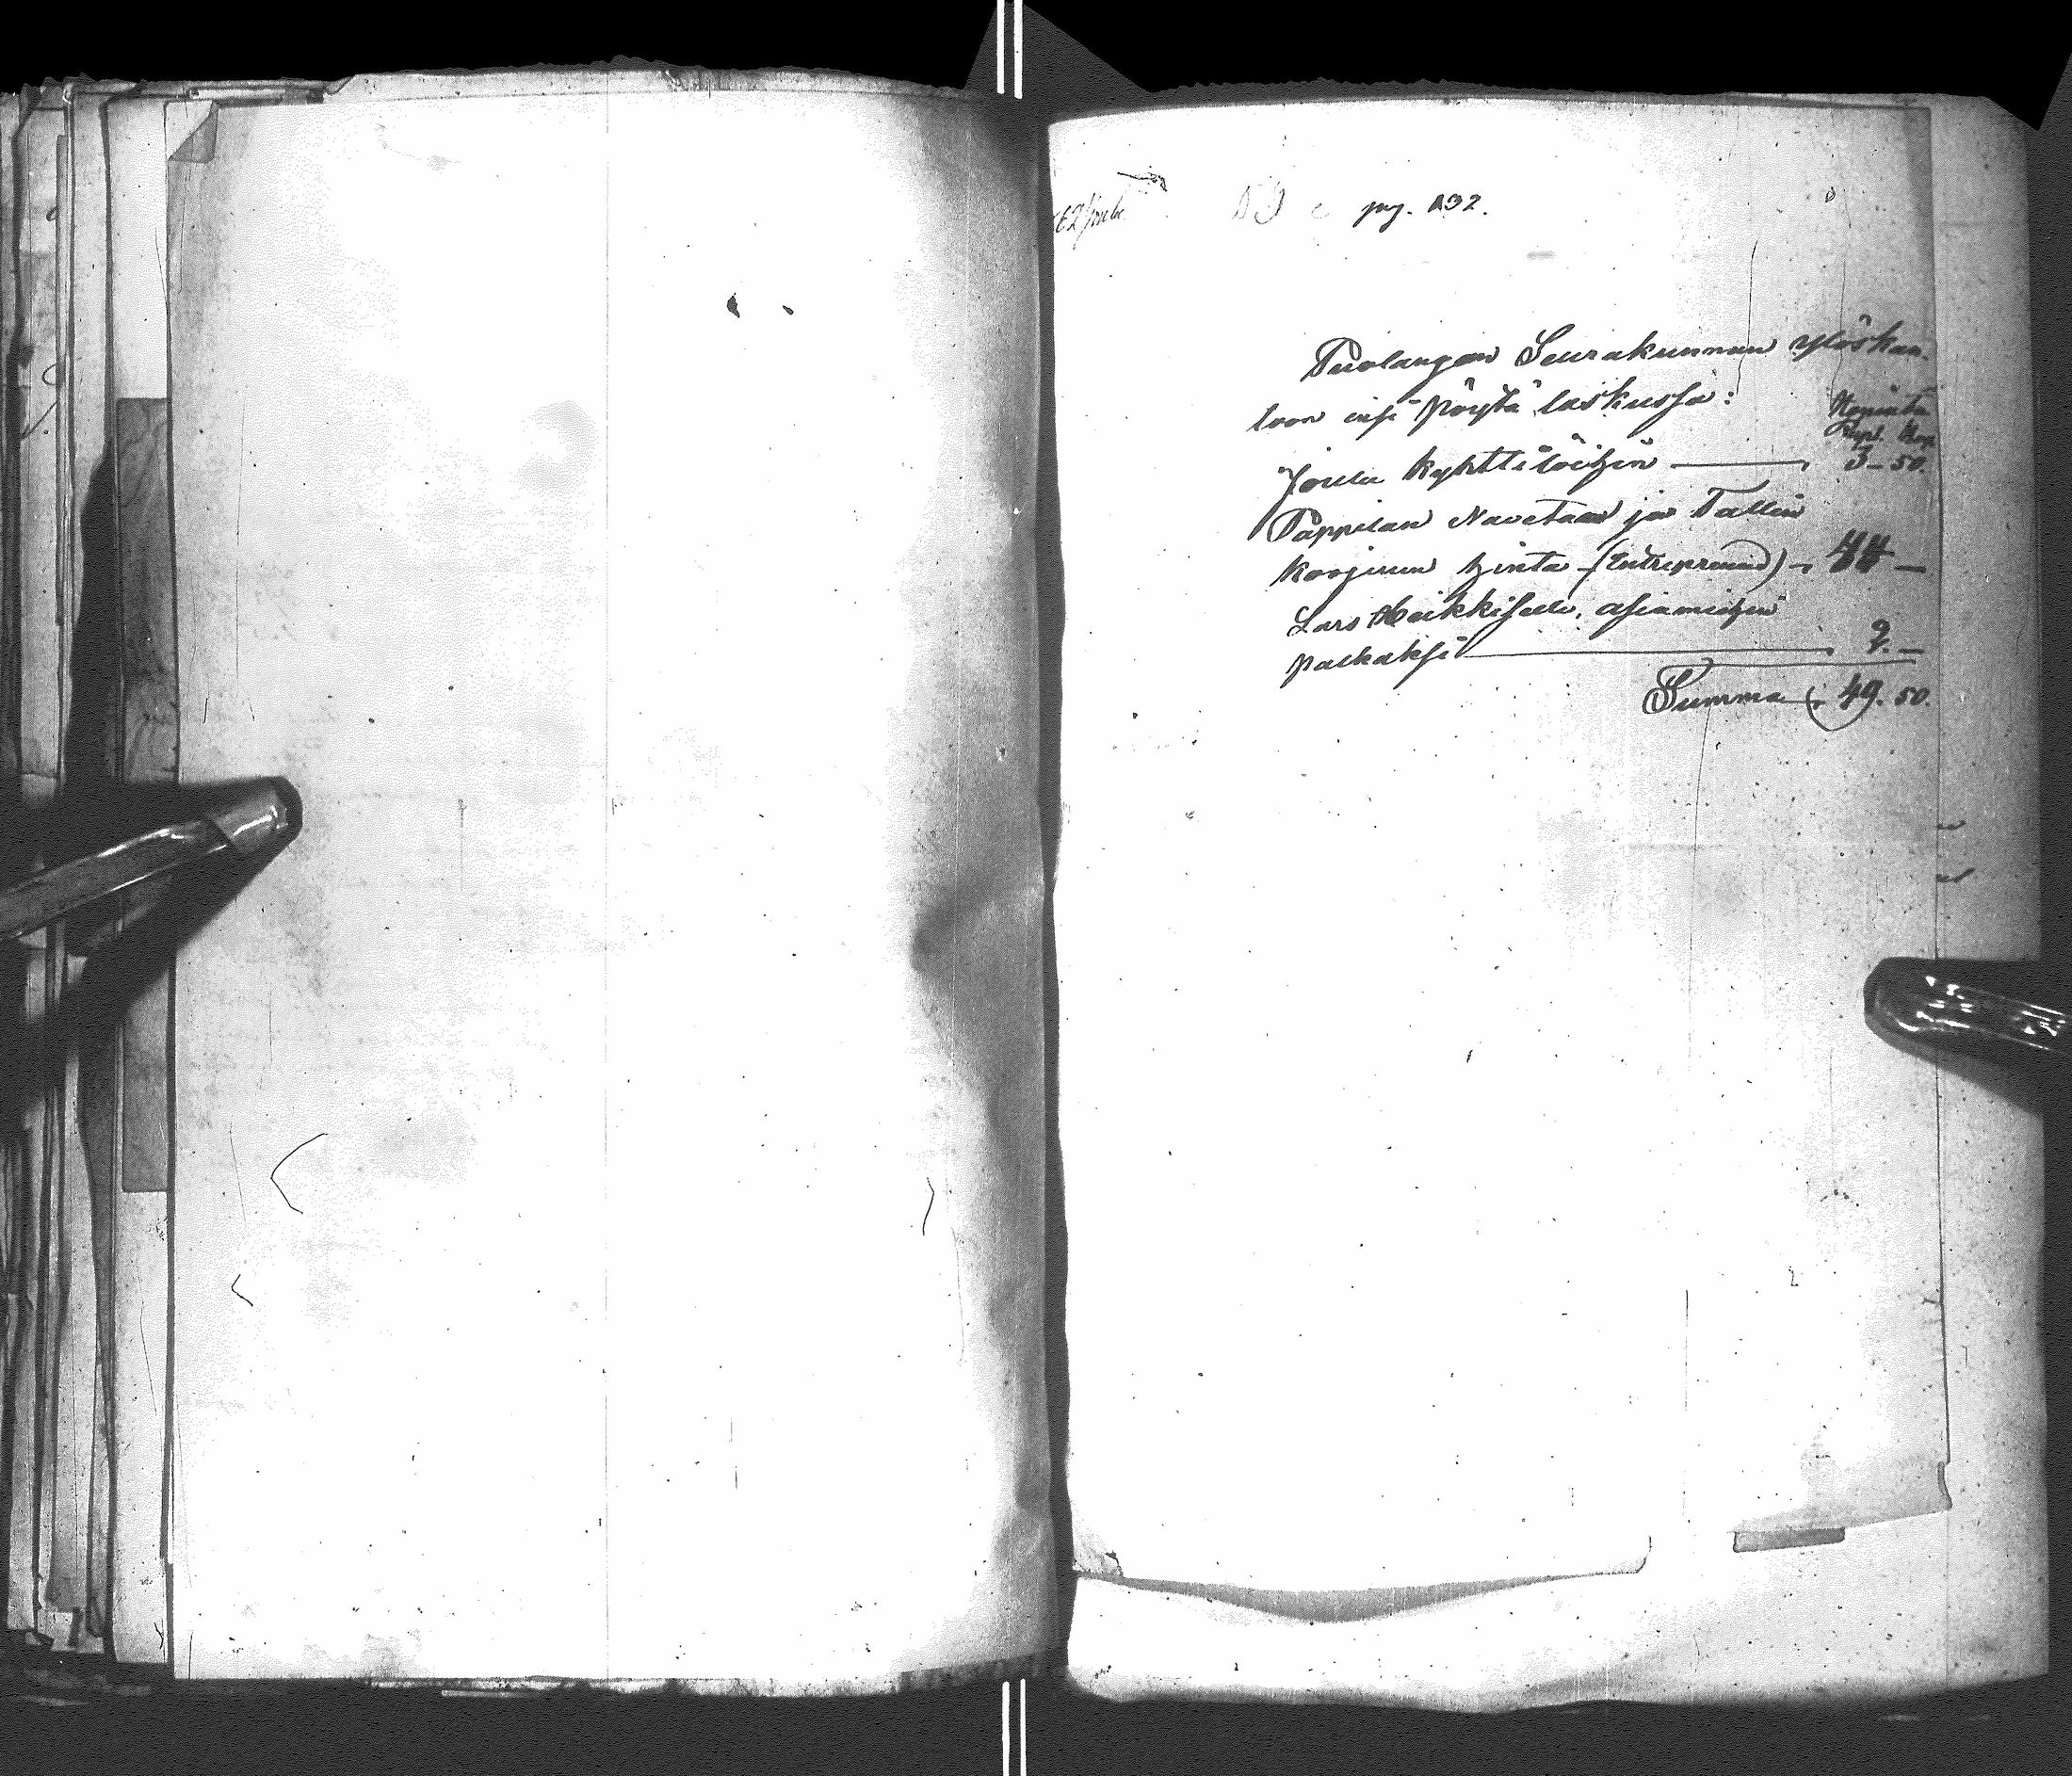 pag. 132.
Puolangan Seurakunnan ylöskan-
toon pöytä laskussa:
Hopiata
Rupl. Kop.
Joulu kyhttilöihin — 3 – 50.
Pappilan Navetan ja Tallin
korjuun hinta (Entreprenad) — 44 —
Lars Heikkiselle, asiamiehen
palkaksi — 2. —
Summa 49. 50.